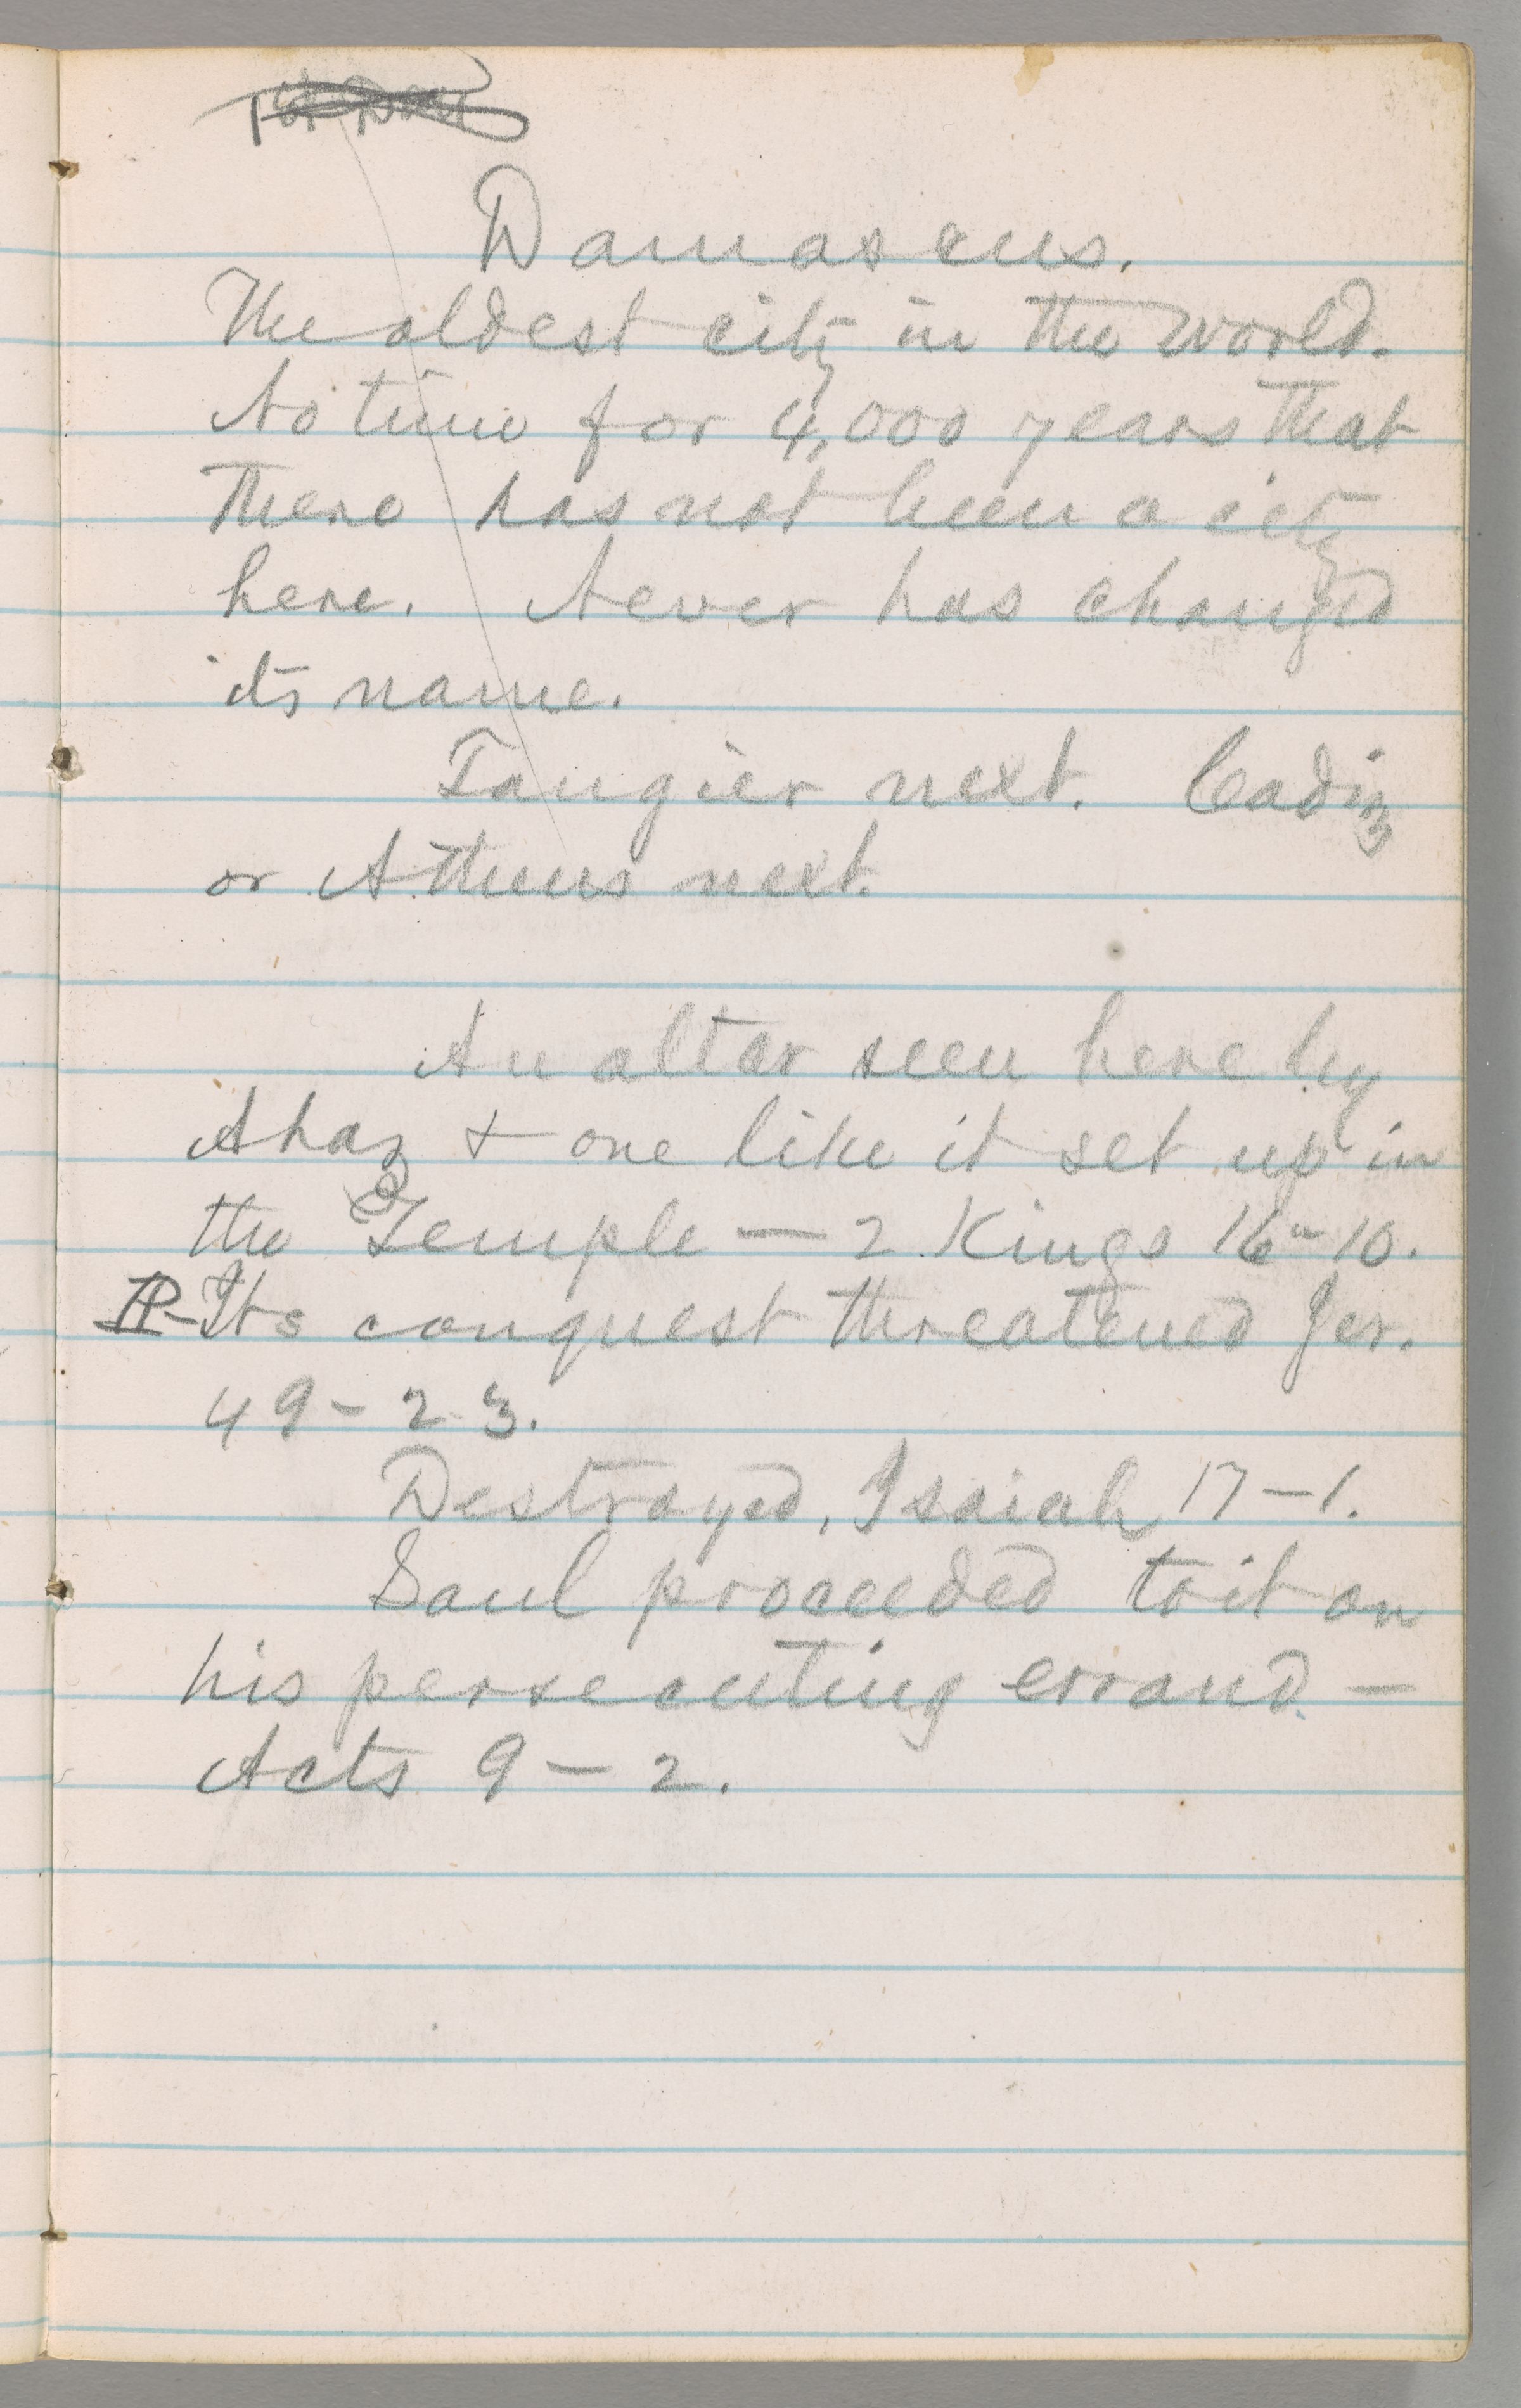 Damascus.
The oldest city in the world.
No time for 4,000 years that
there has not been a city
here. Never has changed
its name.
Tangier next. Cadiz
or Athens next.
An altar seen here by
Ahaz & one like it set up in
the Temple — 2 Kings 16-10.
Its conquest threatened Jer.
49-23.
Destroyed, Isaiah 17-1.
Saul proceeded to it on
his persecuting errand —
Acts 9-2.